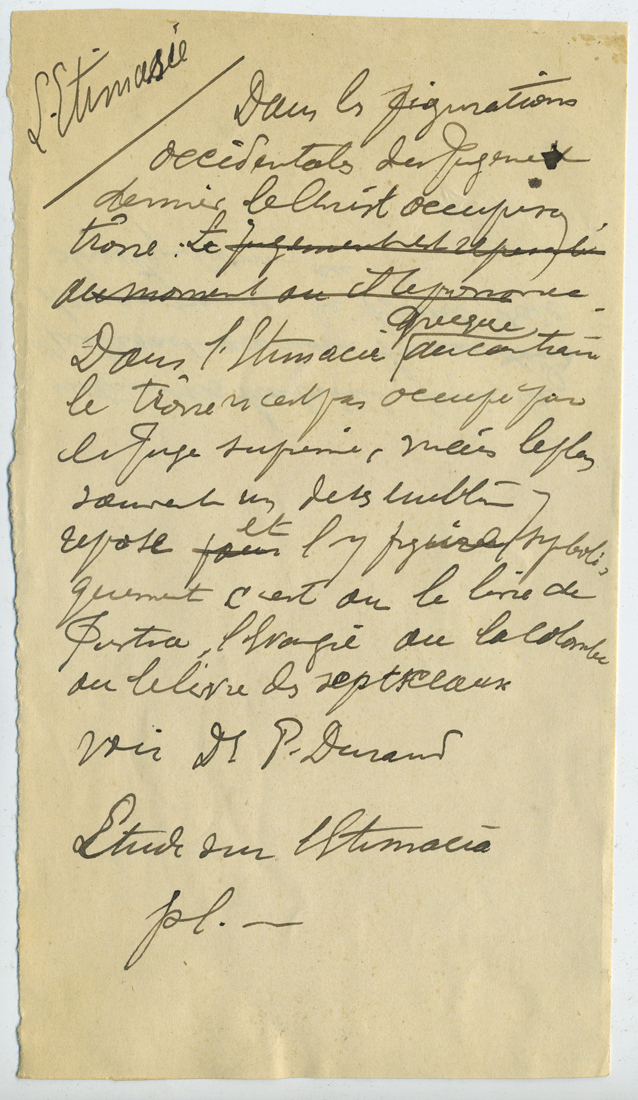 L'Etimasie
Dans les figurations
occidentales du Jugement
dernier le Christ occupe son
trône. Le jugement est
au moment ou Il le prononce
grecque
Dans l'Etimacie au contraire
le trône n'est pas occupé par
le Juge suprême, mais le plus
souvent un emblème
repose et l'y figure symboli-
quement c'est ou le livre de
Justice, l'Evangile ou la colombe
ou le livre des sept sceaux
voir Dr P. Durand
Etude sur l'Etimacia
pl. —